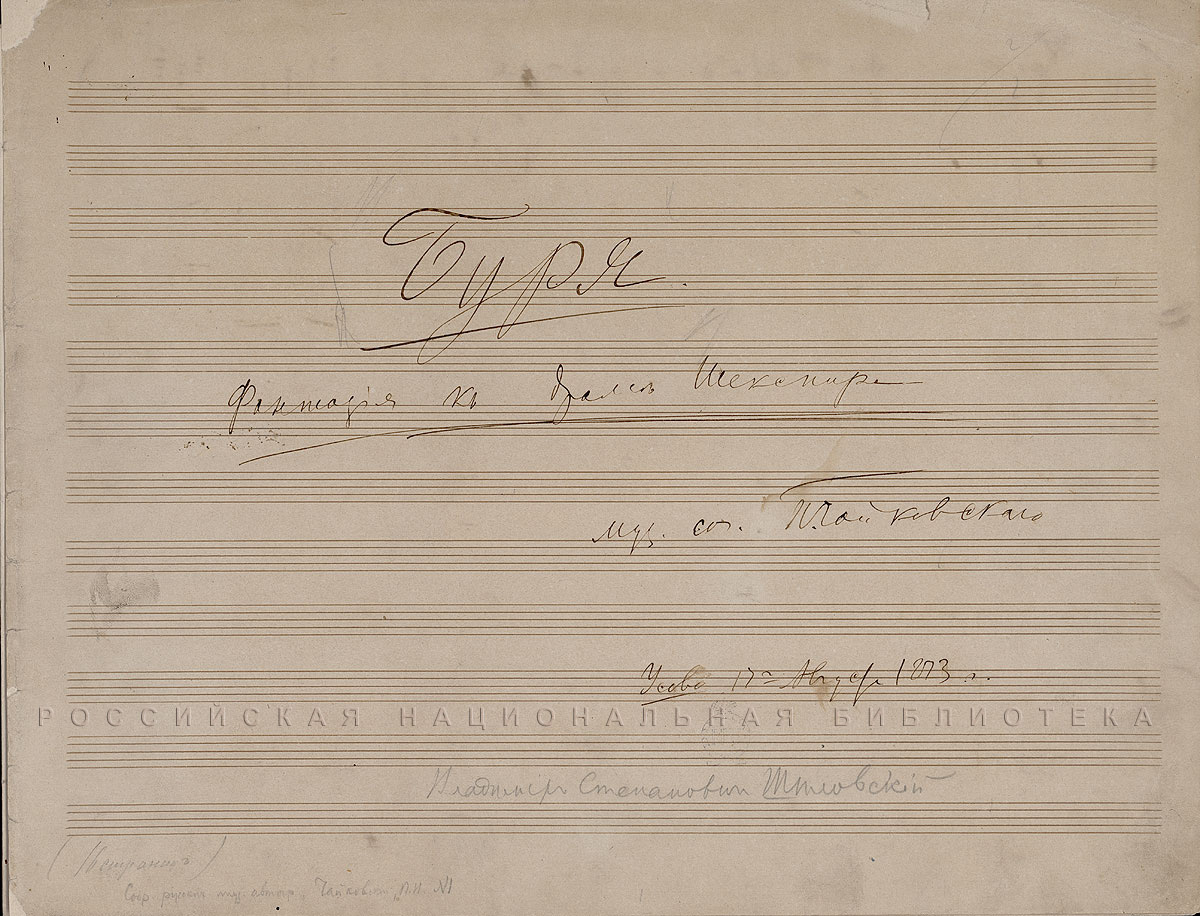 Буря.
Фантазія къ драмѣ Шекспира
муз. соч. П. Чайковскаго
Усово 17го Августа 1873 г.
РОССИЙСКАЯ НАЦИОНАЛЬНАЯ БИБЛИОТЕКА
Владиміръ Степановичъ Шиловскій
Собр. русскихъ муз. автогр. Чайковскій П.И. №1
1